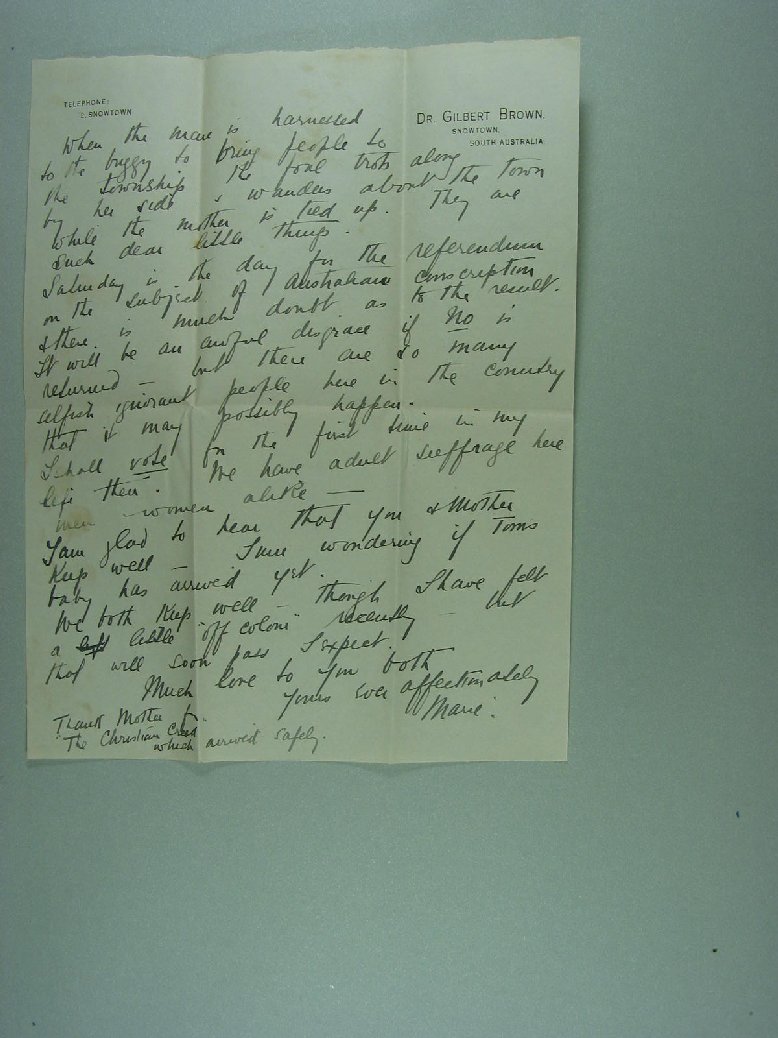 TELEPHONE:
2, SNOWTOWN
DR. GILBERT BROWN.
SNOWTOWN,
SOUTH AUSTRALIA.
When the mare is harnessed
to the buggy to bring people to
the township the foal trots along
by her side & wanders about the town
while the mother is tied up. They are
such dear little things.
Saturday is the day for the referendum
on the subject of Australian conscription
& there is much doubt as to the result.
It will be an awful disgrace if No is
returned — but there are so many
selfish ignorant people here in the country
that it may possibly happen.
I shall vote for the first time in my
life then. We have adult suffrage here
men women alike —
I am glad to hear that you & Mother
keep well — I am wondering if Toms
baby has arrived yet.
We both keep well — though I have felt
a little "off colour" recently — but
that will soon pass I expect.
Much love to you both
Yours ever affectionately
Marie.
Thank Mother for
"The Christian Creed
which arrived safely.